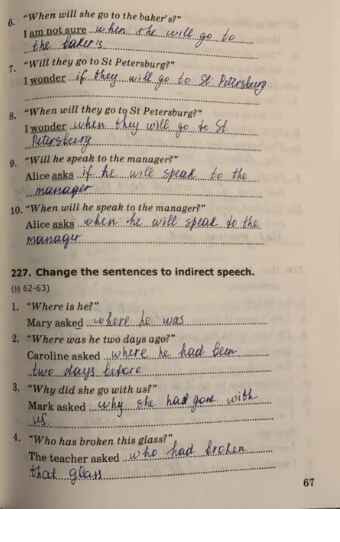 6. "When will she go to the baker's?"
I am not sure when she will go to
the baker's
7. "Will they go to St Petersburg?"
I wonder if they will go to St Petersburg
8. "When will they go to St Petersburg?"
I wonder when they will go to St
Petersburg
9. "Will he speak to the manager?"
Alice asks if he will speak to the
manager
10. "When will he speak to the manager?"
Alice asks when he will speak to the
manager
227. Change the sentences to indirect speech.
(§§ 62-63)
1. "Where is he?"
Mary asked where he was
2. "Where was he two days ago?"
Caroline asked where he had been
two days before
3. "Why did she go with us?"
Mark asked why she had gone with
us
4. "Who has broken this glass?"
The teacher asked who had broken
that glass
67